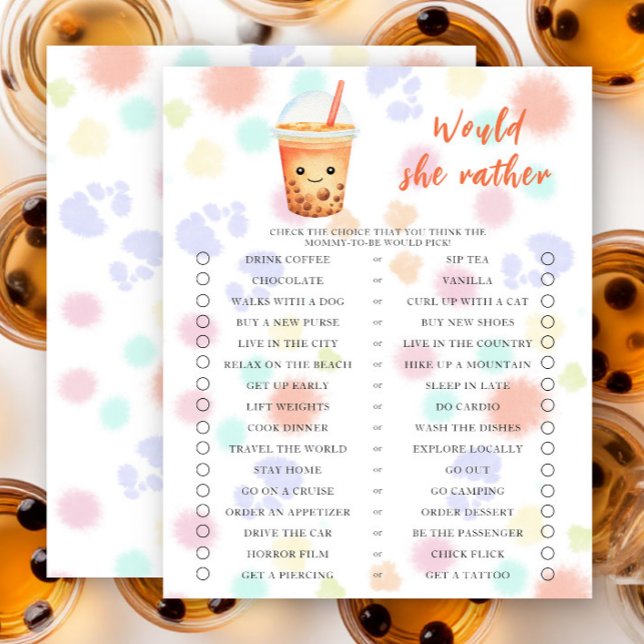 Would
she rather
CHECK THE CHOICE THAT YOU THINK THE
MOMMY-TO-BE WOULD PICK!
DRINK COFFEE or SIP TEA
CHOCOLATE or VANILLA
WALKS WITH A DOG or CURL UP WITH A CAT
BUY A NEW PURSE or BUY NEW SHOES
LIVE IN THE CITY or LIVE IN THE COUNTRY
RELAX ON THE BEACH or HIKE UP A MOUNTAIN
GET UP EARLY or SLEEP IN LATE
LIFT WEIGHTS or DO CARDIO
COOK DINNER or WASH THE DISHES
TRAVEL THE WORLD or EXPLORE LOCALLY
STAY HOME or GO OUT
GO ON A CRUISE or GO CAMPING
ORDER AN APPETIZER or ORDER DESSERT
DRIVE THE CAR or BE THE PASSENGER
HORROR FILM or CHICK FLICK
GET A PIERCING or GET A TATTOO